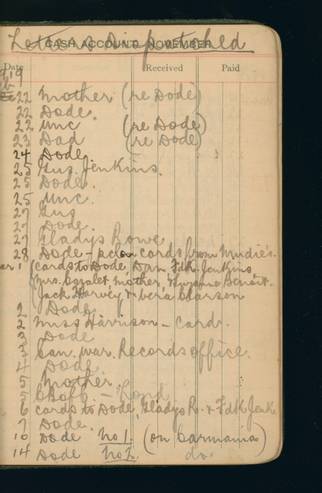 Letters Dispatched
CASH ACCOUNT. NOVEMBER
Date Received Paid
22 Mother (re Dode)
22 Dode.
22 Unc (re Dode)
23 Dad (re Dode)
24 Dode.
25 Gus. Jenkins.
25 Dode.
25 Unc.
27 Gus
27 Dode.
27 Gladys Rowe.
28 Dode - cards from Mudie's.
Mar. 1 (cards to Dode, Dan, Fdk. Jenkins
Mrs. Mother,
Jack Harvey & Vera Clarson
2 Dode
2 Miss Harrison - card.
3 Dode
3 Can. War Records office.
4 Dode.
5 Mother.
5
6 cards to Dode, Gladys R. & Fdk Jenk
7 Dode.
10 Dode no 1. (on Carmania)
14 Dode no 2. do.